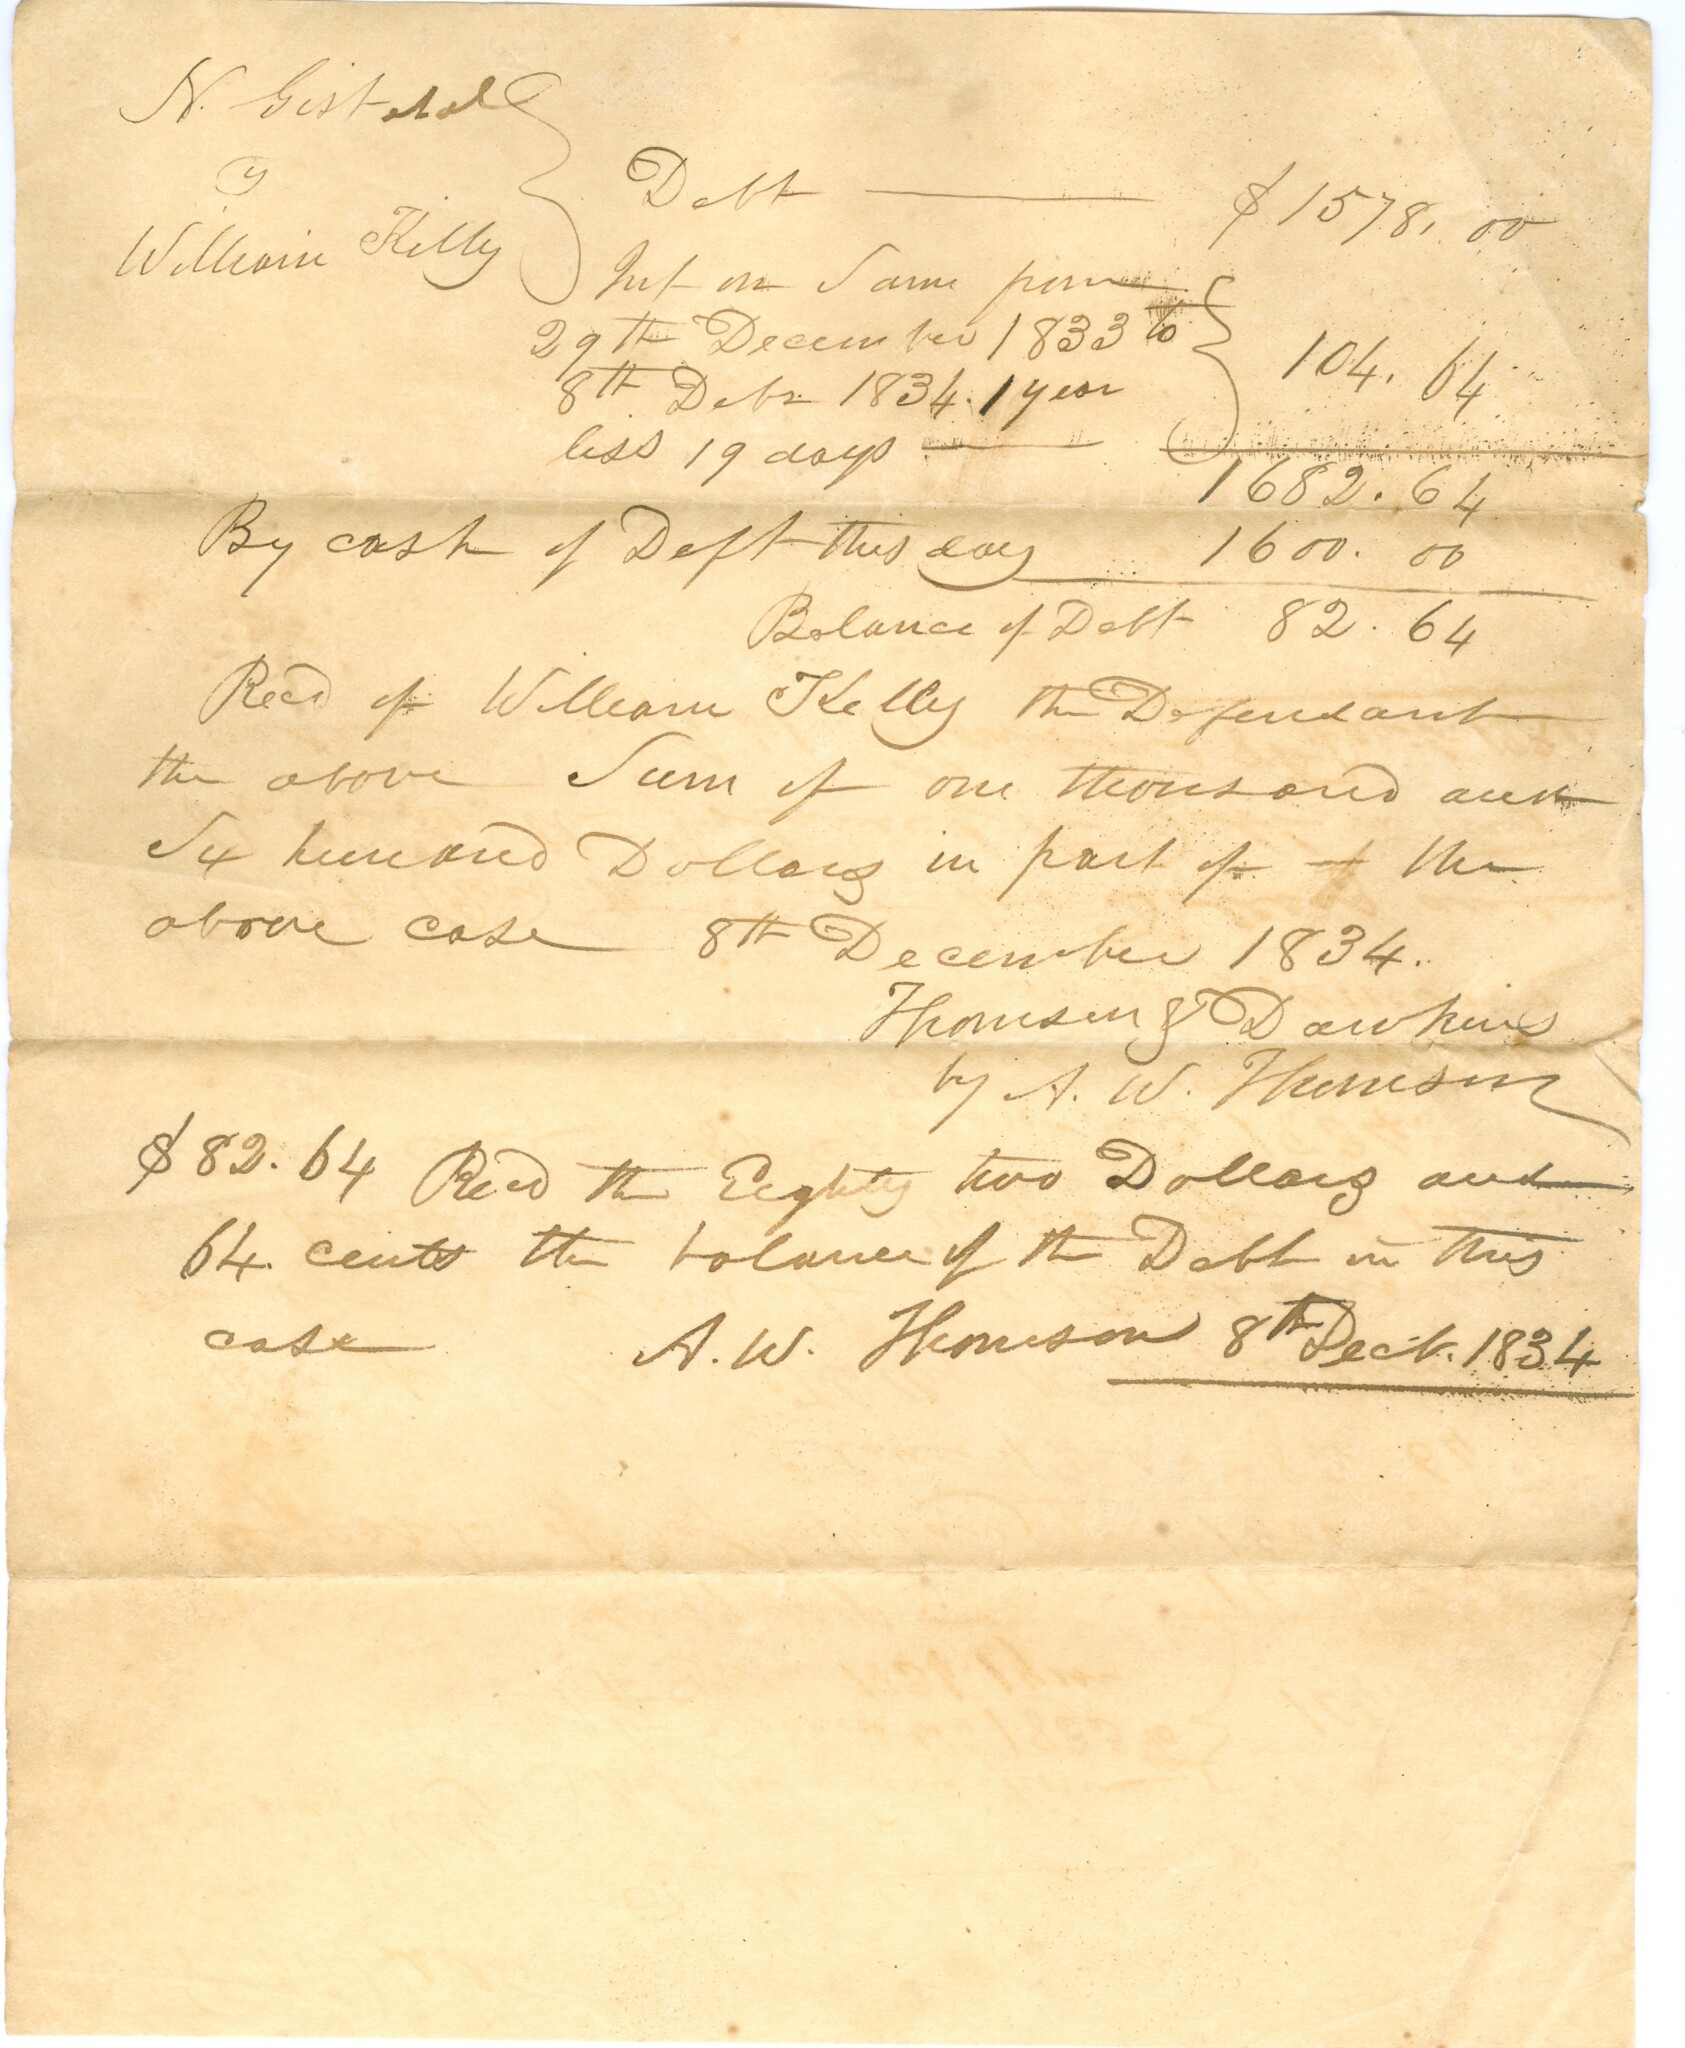 N. Gist et al
v
William Kelly
Debt $1578.00
Int on Same from
29th December 1833 to
8th Debr 1834. 1 year 104.64
less 19 days
1682.64
By cash of Deft this day 1600.00
Balance of Debt 82.64
Recd of William Kelly the Defendant
the above Sum of one thousand and
Six hundred Dollars in part of the
above case 8th December 1834.
Thomson & Dawkins
by A. W. Thomson
$82.64 Recd the Eighty two Dollars and
64. cents the balance of the Debt in this
case A. W. Thomson 8th Decb. 1834